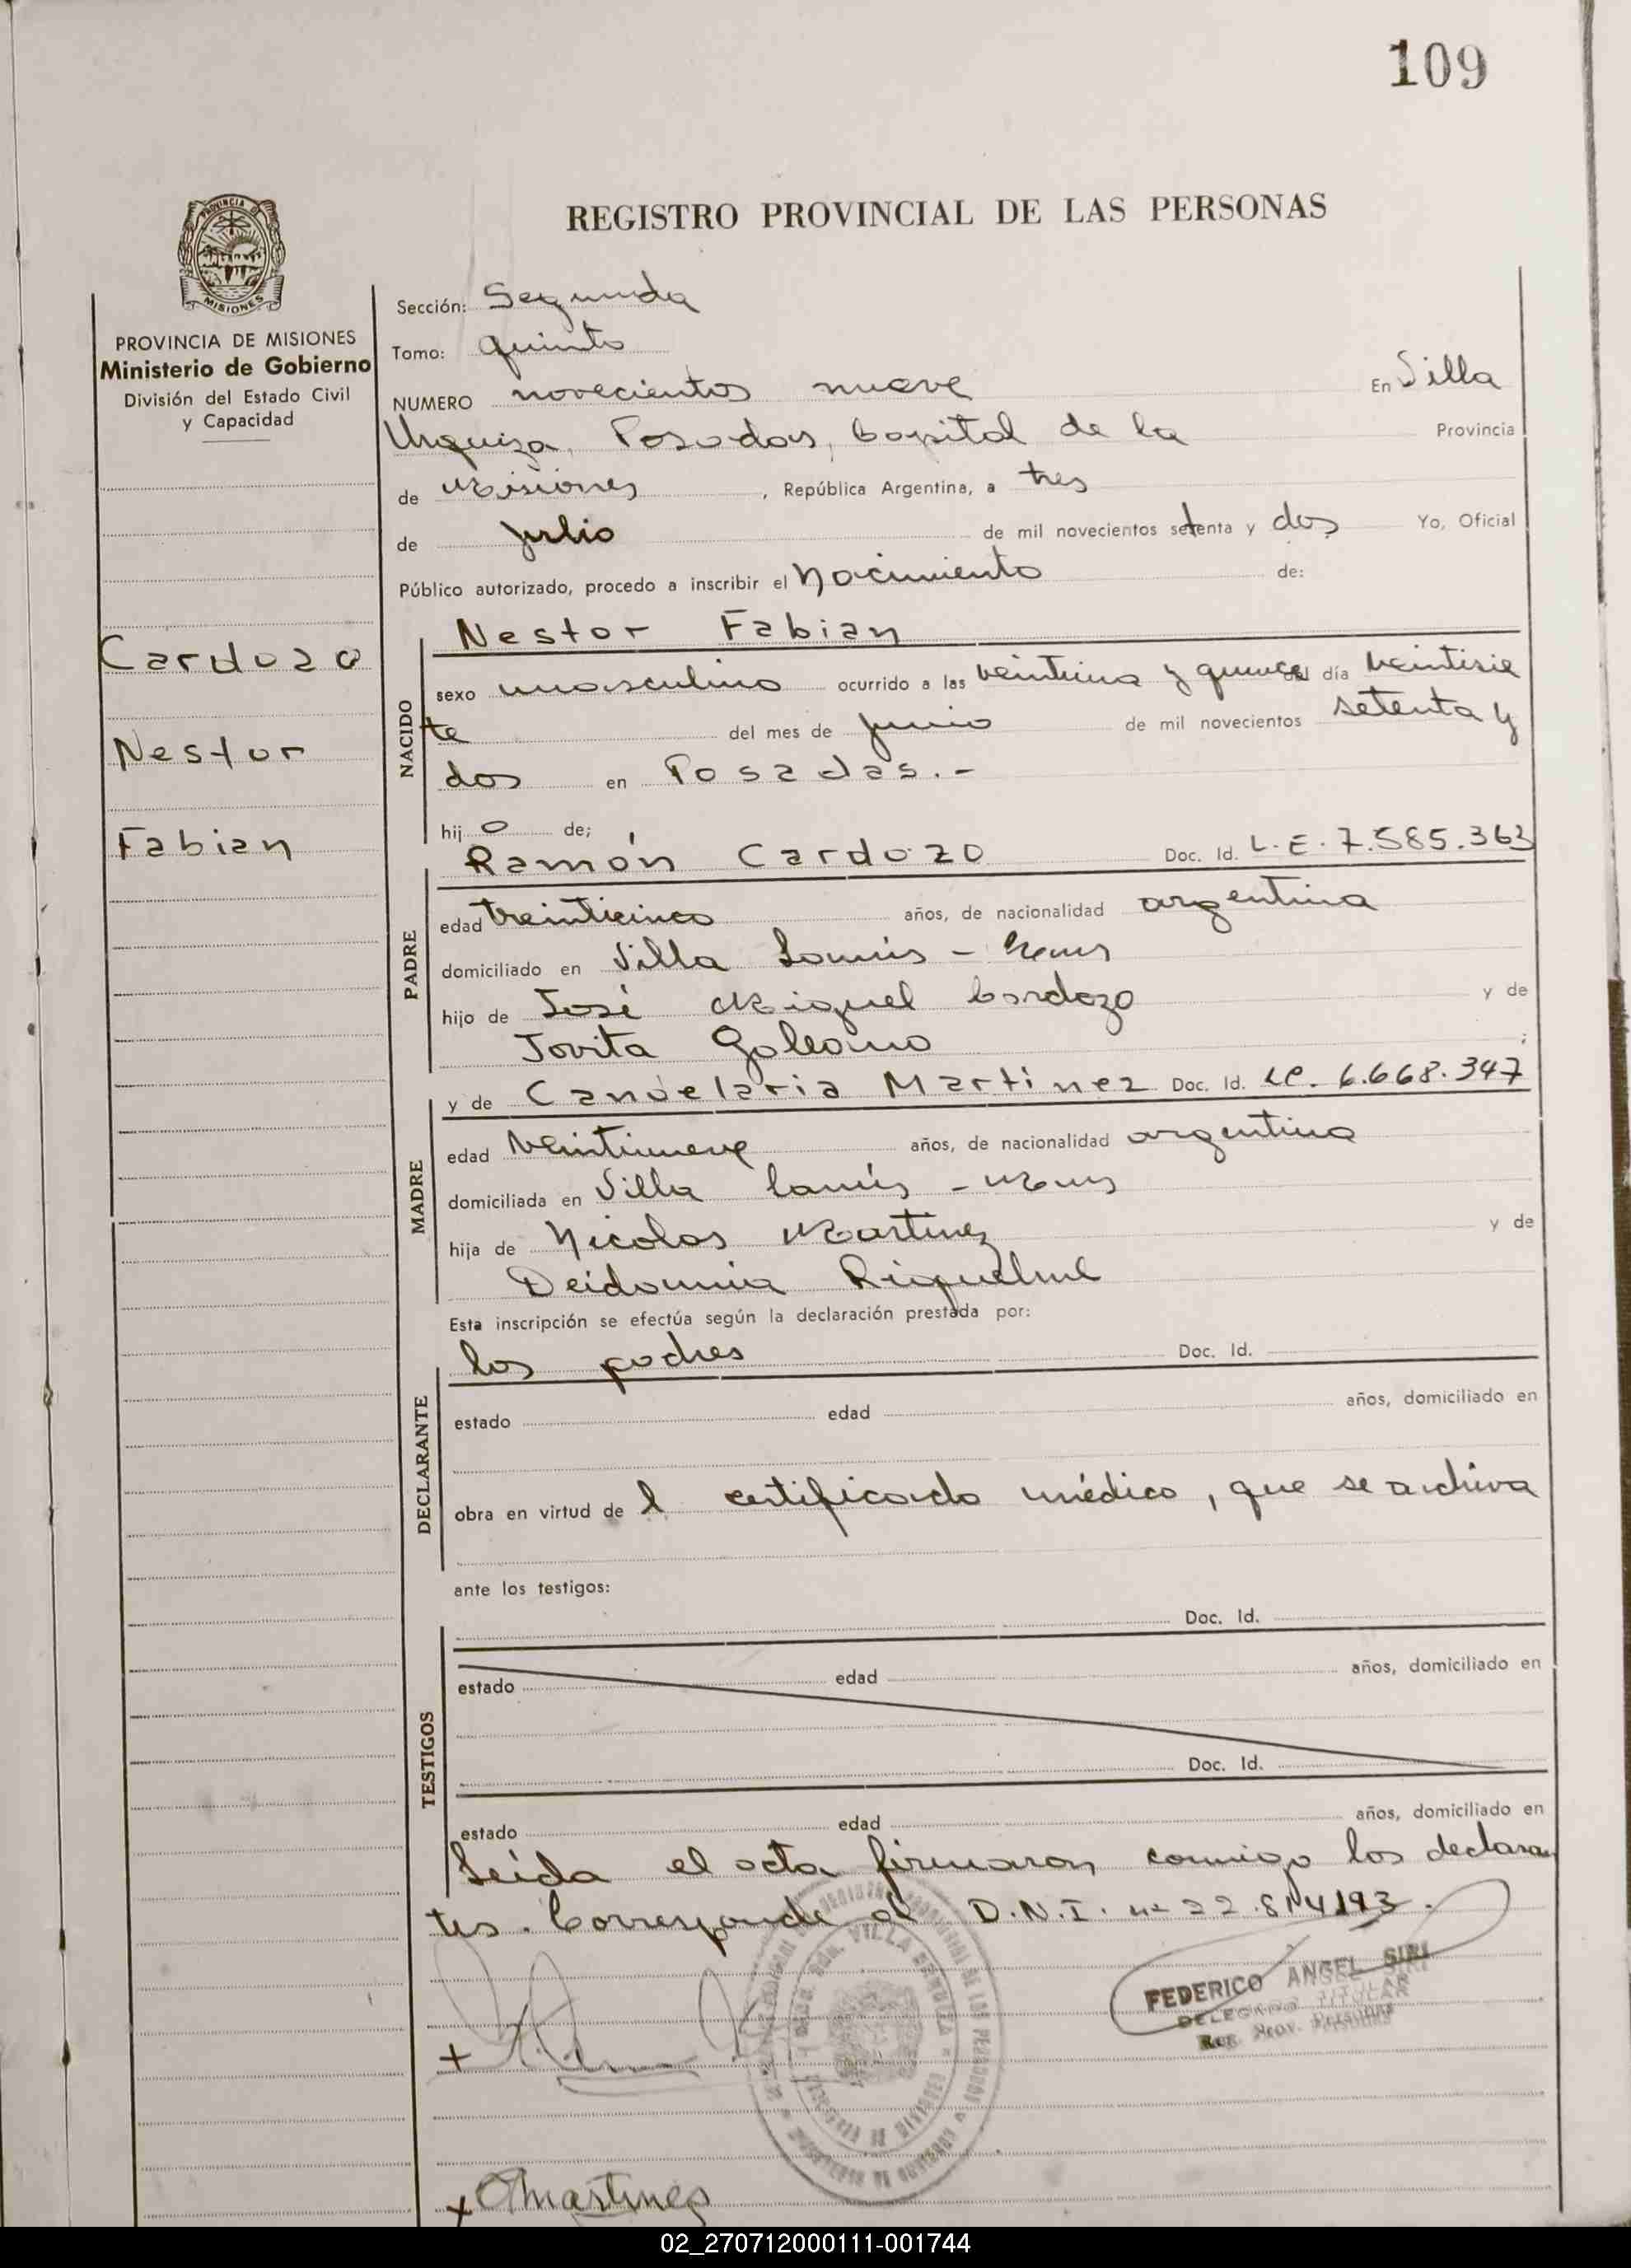 109
REGISTRO PROVINCIAL DE LAS PERSONAS
PROVINCIA
MISIONES
PROVINCIA DE MISIONES
Ministerio de Gobierno
División del Estado Civil
y Capacidad
Cardozo
Nestor
Fabian
Sección: Segunda
Tomo: quinto
NUMERO novecientos nueve En Villa
Urquiza, Posadas, Capital de la Provincia
de Misiones, República Argentina, a tres
de julio de mil novecientos setenta y dos Yo, Oficial
Público autorizado, procedo a inscribir el Nacimiento de:
Nestor Fabian
NACIDO
sexo masculino ocurrido a las veintiuna y quince del día veintisie
te del mes de junio de mil novecientos setenta y
dos en Posadas.-
hijo de;
Ramón Cardozo Doc. Id. L.E. 7.585.363
PADRE
edad treinticinco años, de nacionalidad argentina
domiciliado en Villa Lanús -
hijo de José Miguel Cardozo y de
Jovita Galeano ;
y de Candelaria Martinez Doc. Id. LC. 6.668.347
MADRE
edad veintinueve años, de nacionalidad argentina
domiciliada en Villa Lanús -
hija de Nicolas Martinez y de
Deidamia Riquelme
Esta inscripción se efectúa según la declaración prestada por:
los padres Doc. Id.
DECLARANTE
estado edad años, domiciliado en
obra en virtud de l certificado médico, que se archiva
ante los testigos:
Doc. Id.
TESTIGOS
estado edad años, domiciliado en
Doc. Id.
estado edad años, domiciliado en
Leída el acta firmaron conmigo los declaran
tes. Corresponde al D.N.I. nº 22.814193.
FEDERICO ANGEL SIRI
DELEGADO TITULAR
Reg. Prov. Personas
x
x CMartinez
02_270712000111-001744